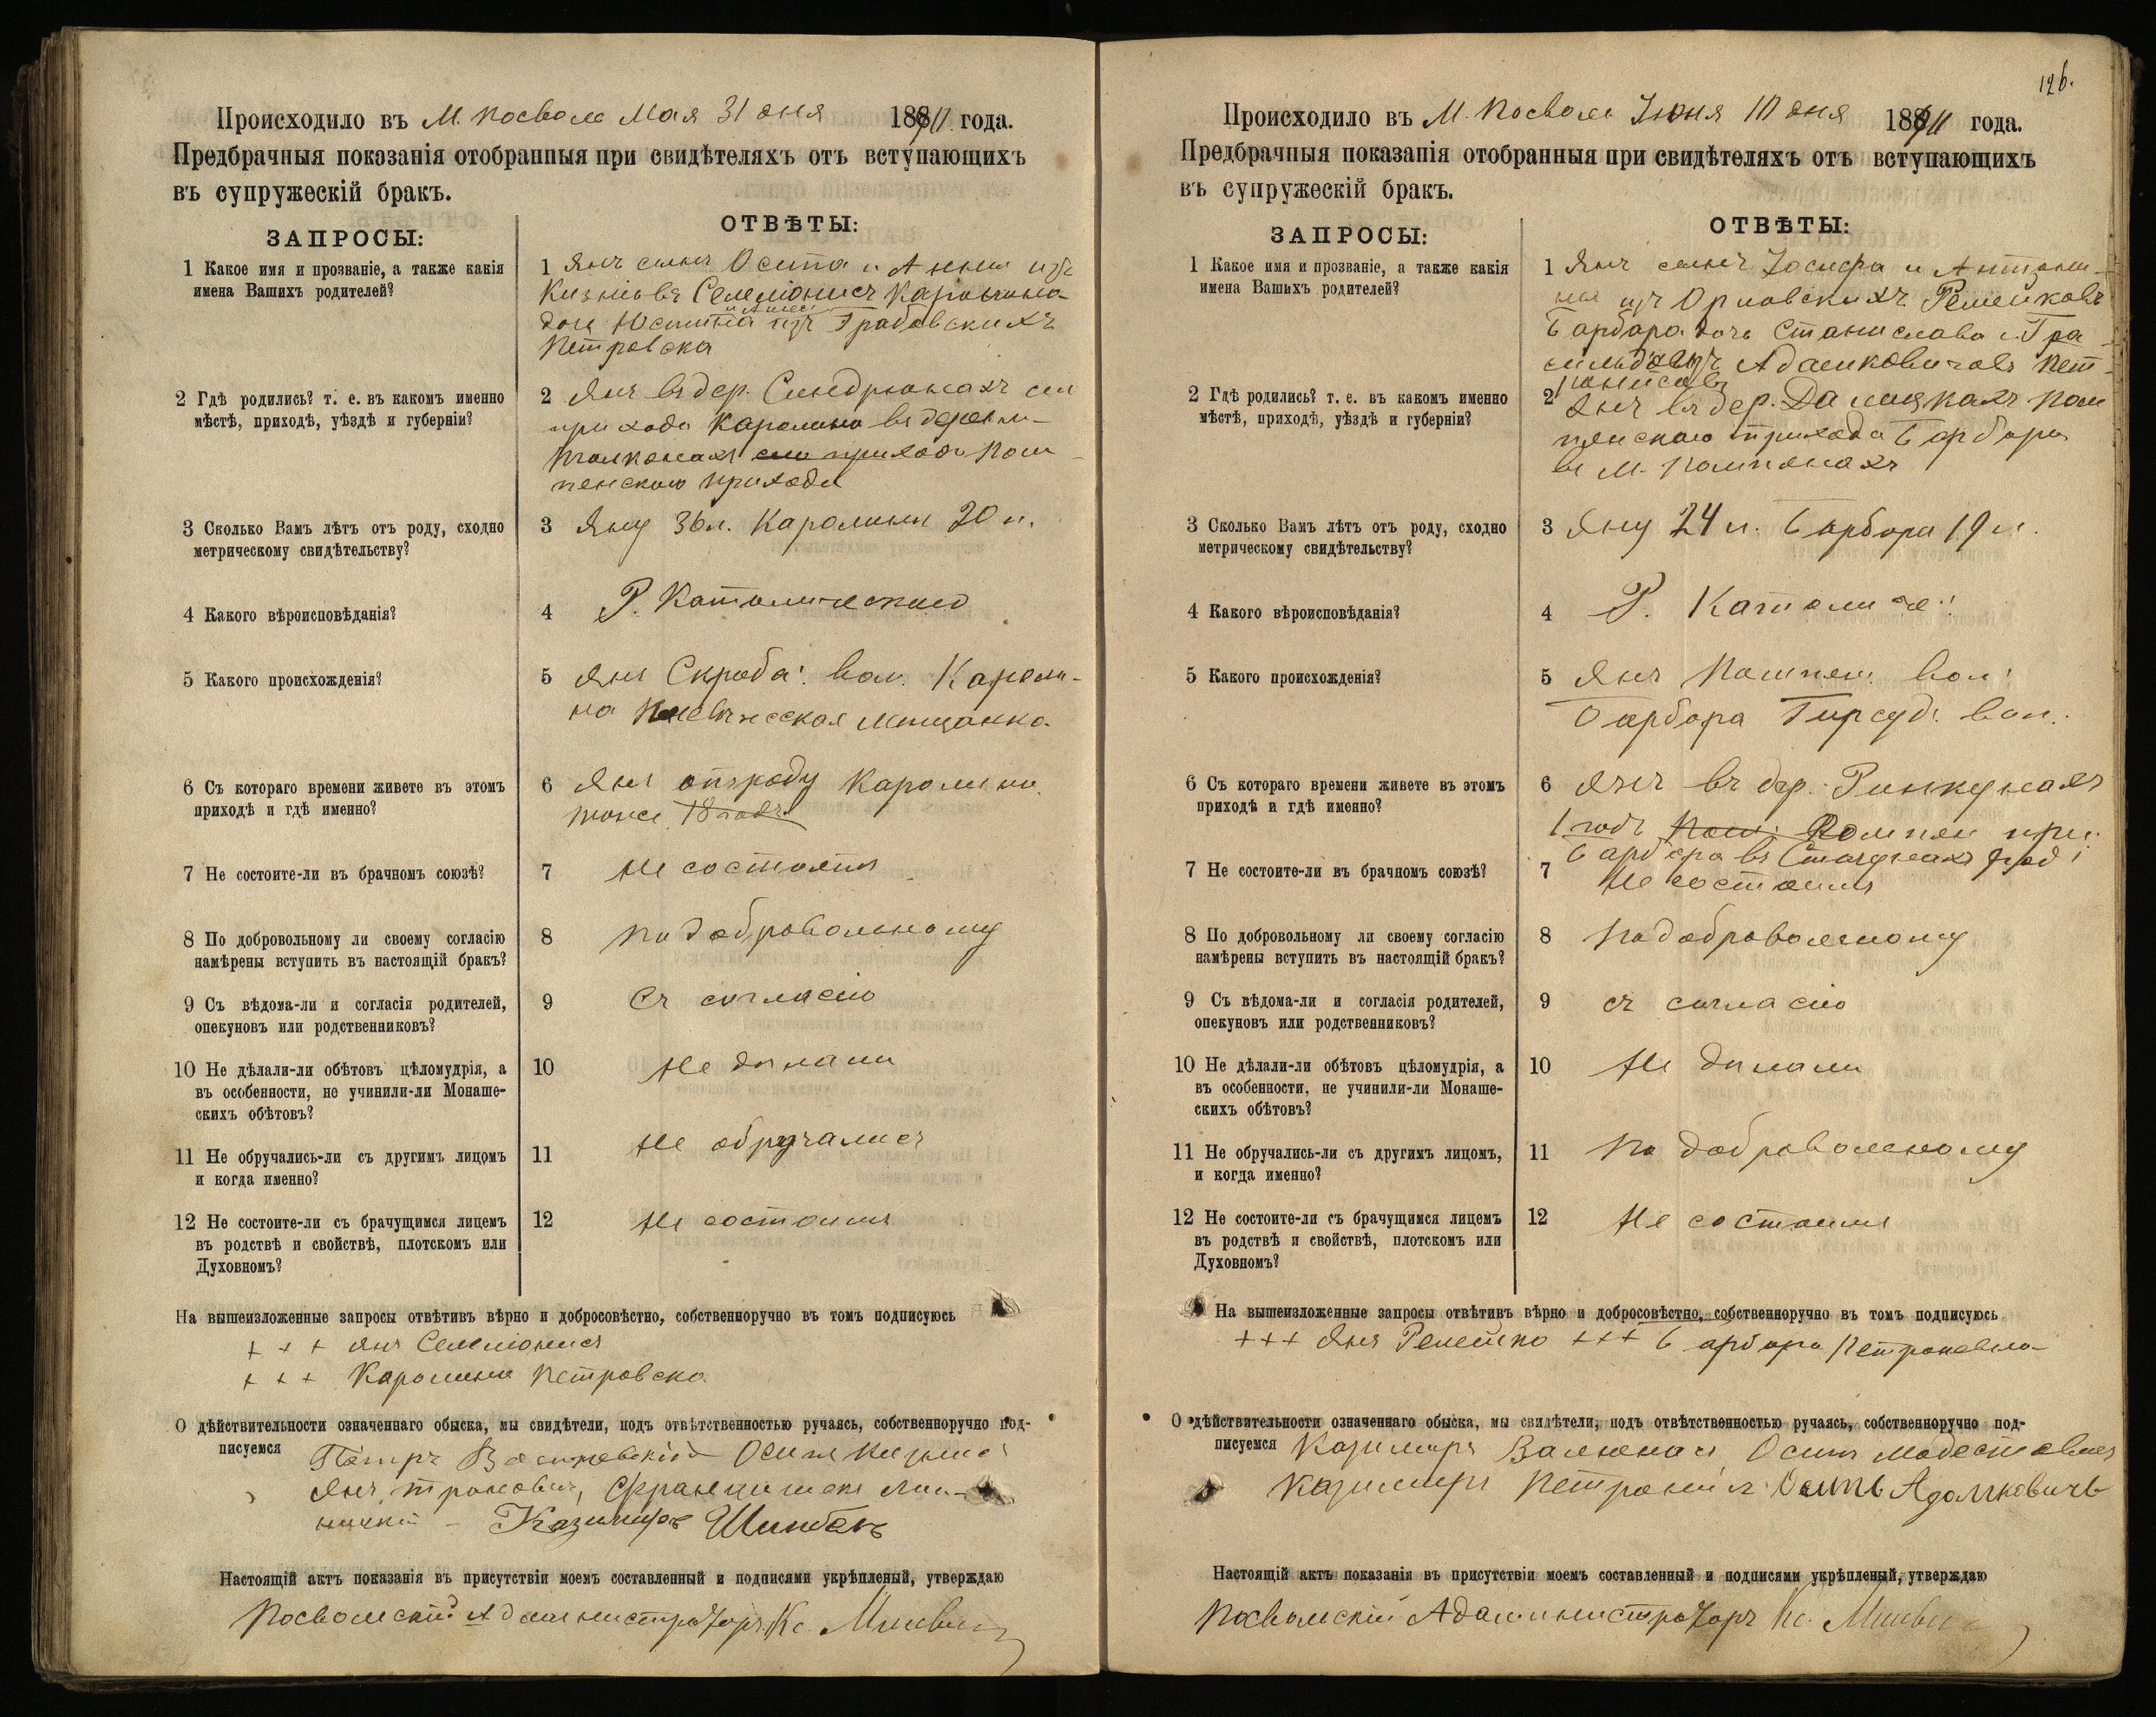 Происходило въ М. Посволе Мая 31 дня 1891 года.
Предбрачныя показанія отобранныя при свидѣтеляхъ отъ вступающихъ
въ супружескій бракъ.
ЗАПРОСЫ:
ОТВѢТЫ:
1 Какое имя и прозваніе, а также какія
имена Вашихъ родителей?
1 Янъ сынъ Осипа и Анны изъ
Семеліонисъ Каролина
дочь Юстина изъ Грабовскихъ
Петровска
2 Гдѣ родились? т. е. въ какомъ именно
мѣстѣ, приходѣ, уѣздѣ и губерніи?
2 Янъ въ дер. сего
прихода Каролина въ
прихода
пенскаго прихода
3 Сколько Вамъ лѣтъ отъ роду, сходно
метрическому свидѣтельству?
3 Яну 36 л. Каролины 20 л.
4 Какого вѣроисповѣданія?
4 Р. Католическаго
5 Какого происхожденія?
5 Янъ Скроба: вол. Кароли-
на мѣщанка
6 Съ котораго времени живете въ этомъ
приходѣ и гдѣ именно?
6 Янъ отъ роду Каролина
тоже
7 Не состоите-ли въ брачномъ союзѣ?
7 Не состоятъ
8 По добровольному ли своему согласію
намѣрены вступить въ настоящій бракъ?
8 По добровольному
9 Съ вѣдома-ли и согласія родителей,
опекуновъ или родственниковъ?
9 Съ согласію
10 Не дѣлали-ли обѣтовъ цѣломудрія, а
въ особенности, не учинили-ли Монаше-
скихъ обѣтовъ?
10 Не дѣлали
11 Не обручались-ли съ другимъ лицомъ
и когда именно?
11 Не обручались
12 Не состоите-ли съ брачущимся лицемъ
въ родствѣ и свойствѣ, плотскомъ или
Духовномъ?
12 Не состоимъ
На вышеизложенные запросы отвѣтивъ вѣрно и добросовѣстно, собственноручно въ томъ подписуюсь
+ + + Янъ Семеліонисъ
+ + + Каролина Петровска
О дѣйствительности означеннаго обыска, мы свидѣтели, подъ отвѣтственностью ручаясь, собственноручно под-
писуемся Петръ Осипъ
Янъ
Казимиръ
Настоящій актъ показанія въ присутствіи моемъ составленный и подписями укрѣпленый, утверждаю
Посвольскій Администраторъ Кс.
126.
Происходило въ М. Посволе Іюня 10 дня 1891 года.
Предбрачныя показанія отобранныя при свидѣтеляхъ отъ вступающихъ
въ супружескій бракъ.
ЗАПРОСЫ:
ОТВѢТЫ:
1 Какое имя и прозваніе, а также какія
имена Вашихъ родителей?
1 Янъ сынъ Іосифа и Антони-
ны изъ Орловскихъ Ремейковъ
Барбара дочь Станислава и Гра
Адамковичовъ Пет-
2 Гдѣ родились? т. е. въ какомъ именно
мѣстѣ, приходѣ, уѣздѣ и губерніи?
2 Янъ въ дер. Пом
пянскаго прихода Барбара
въ М. Помпянахъ
3 Сколько Вамъ лѣтъ отъ роду, сходно
метрическому свидѣтельству?
3 Яну 24 л. Барбара 19 л.
4 Какого вѣроисповѣданія?
4 Р. Католиче:
5 Какого происхожденія?
5 Янъ Помпян: вол:
Барбара Гирсуд: вол.
6 Съ котораго времени живете въ этомъ
приходѣ и гдѣ именно?
6 Янъ въ дер. Ринкунахъ
1 годъ
Барбара въ
7 Не состоите-ли въ брачномъ союзѣ?
7 Не состоимъ
8 По добровольному ли своему согласію
намѣрены вступить въ настоящій бракъ?
8 По добровольному
9 Съ вѣдома-ли и согласія родителей,
опекуновъ или родственниковъ?
9 съ согласію
10 Не дѣлали-ли обѣтовъ цѣломудрія, а
въ особенности, не учинили-ли Монаше-
скихъ обѣтовъ?
10 Не дѣлали
11 Не обручались-ли съ другимъ лицомъ,
и когда именно?
11 По добровольному
12 Не состоите-ли съ брачущимся лицемъ
въ родствѣ и свойствѣ, плотскомъ или
Духовномъ?
12 Не состоимъ
На вышеизложенные запросы отвѣтивъ вѣрно и добросовѣстно, собственноручно въ томъ подписуюсь
+++ Янъ Ремейко +++ Барбара
О дѣйствительности означеннаго обыска, мы свидѣтели, подъ отвѣтственностью ручаясь, собственноручно под-
писуемся Казимиръ Осипъ
Казимиръ Осипъ Адамковичъ
Настоящій актъ показанія въ присутствіи моемъ составленный и подписями укрѣпленый, утверждаю
Посвольскій Администраторъ Кс.